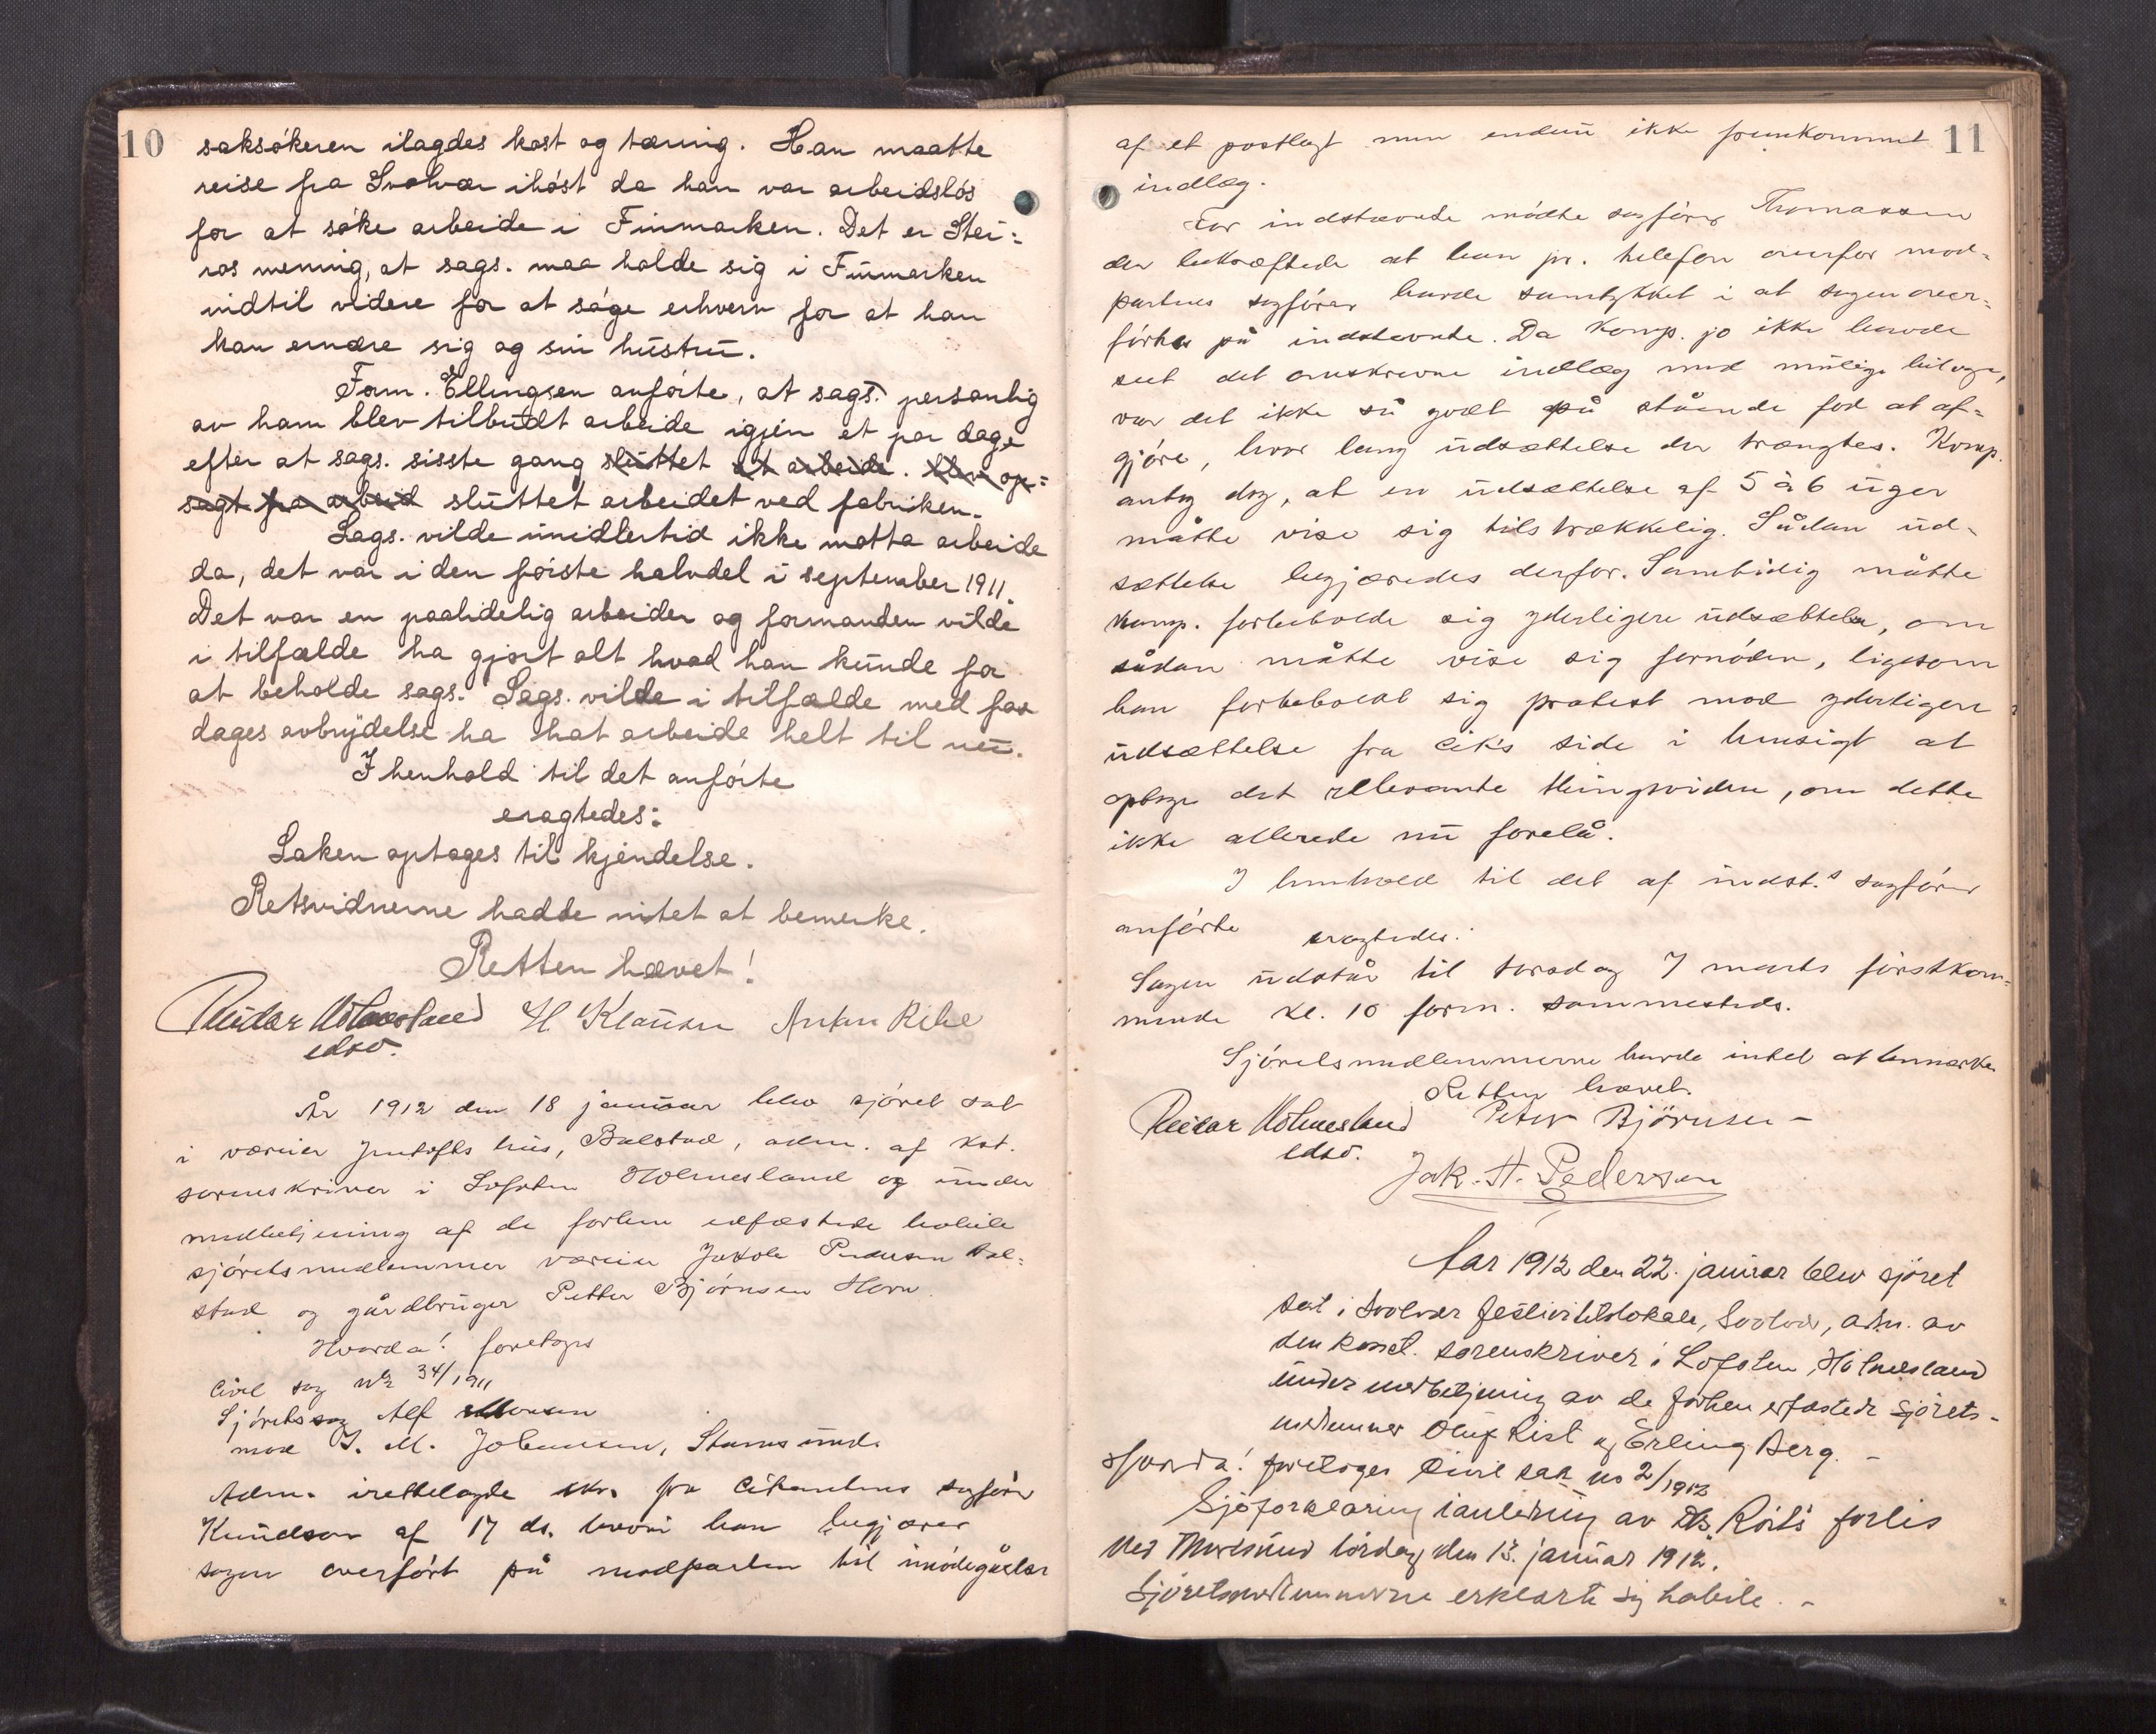 10
saksøkeren ilagdes kost og tæring. Han maatte
reise fra Svolvær ihøst da han var arbeidsløs
for at søke arbeide i Finmarken. Det er Stei-
ros mening, at sags. maa holde sig i Finmarken
indtil videre for at søge erhverv for at han
kan ernære sig og sin hustru.
Form. Ellingsen anførte, at sags. personlig
av ham blev tilbudt arbeide igjen et par dage
efter at sags. sisste gang sluttet at arbeide. blev op-
sagt fra arbeid sluttet arbeidet ved fabriken.
Sags. vilde imidlertid ikke motta arbeide
da, det var i den første halvdel i september 1911.
Det var en paalidelig arbeider og formanden vilde
i tilfælde ha gjort alt hvad han kunde for
at beholde sags. Sags. vilde i tilfælde med faa
dages avbrydelse ha hat arbeide helt til nu.
I henhold til det anførte
eragtedes:
Saken optages til kjendelse.
Retsvidnerne hadde intet at bemerke.
Retten hævet!
Reidar Holmesland H Klausen Anton Rike
edsv.
År 1912 den 18 januar blev sjøret sat
i væreier Jentofts hus, Balstad, adm. af kst.
sorenskriver i Lofoten Holmesland og under
medbetjening af de forhen edfæstede habile
sjøretsmedlemmer væreier Jakob Pedersen Bal-
stad og gårdbruger Petter Bjørnsen Horn.
Hvorda! foretages
Civil sag No 34/1911
Sjøretssag Alf Monsen
mod J. M. Johansen, Stamsund.
Adm. irettelagde skr. fra Citantens sagfører
Knudson af 17 ds. hvori han begjærer
sagen overført på modparten til imødegåelse
11
af et postlagt men endnu ikke fremkommet
indlæg.
For indstævnte mødte sagfører Thomassen
der bekræftede at han pr. telefon overfor mod-
partens sagfører havde samtykket i at sagen over-
førtes på indstævnte. Da komp. jo ikke havde
seet det omskrevne indlæg med mulige bilage,
var det ikke så godt på stående fod at af-
gjøre, hvor lang udsættelse der trængtes. Komp.
antog dog, at en udsættelse af 5 à 6 uger
måtte vise sig tilstrækkelig. Sådan ud-
sættelse begjæredes derfor. Samtidig måtte
komp. forbeholde sig yderligere udsættelse, om
sådan måtte vise sig fornøden, ligesom
han forbeholdt sig protest mod yderligere
udsættelse fra cit.s side i hensigt at
optage det relevante thingsvidne, om dette
ikke allerede nu forelå.
I henhold til det af indst.s sagfører
anførte
eragtedes:
Sagen udstår til torsdag 7 marts førstkom-
mende kl. 10 form. sammesteds.
Sjøretsmedlemmerne havde intet at bemærke
Retten hævet.
Reidar Holmesland Peter Bjørnsen –
edsv.
Jak. H. Pedersen
Aar 1912 den 22. januar blev sjøret
sat i Svolvær festivitetslokale, Svolvær, adm. av
den konst. sorenskriver i Lofoten, Holmesland
under medbetjening av de forhen edfæstede sjørets-
medlemmer Oluf Rist og Erling Berg. –
Hvorda! foretages Civil sak no 2/1912
Sjøforklaring i anledning av D/s "Røst's" forlis
ved Mortsund lørdag den 13. januar 1912.
Sjøretsmedlemmerne erklærte sig habile. –